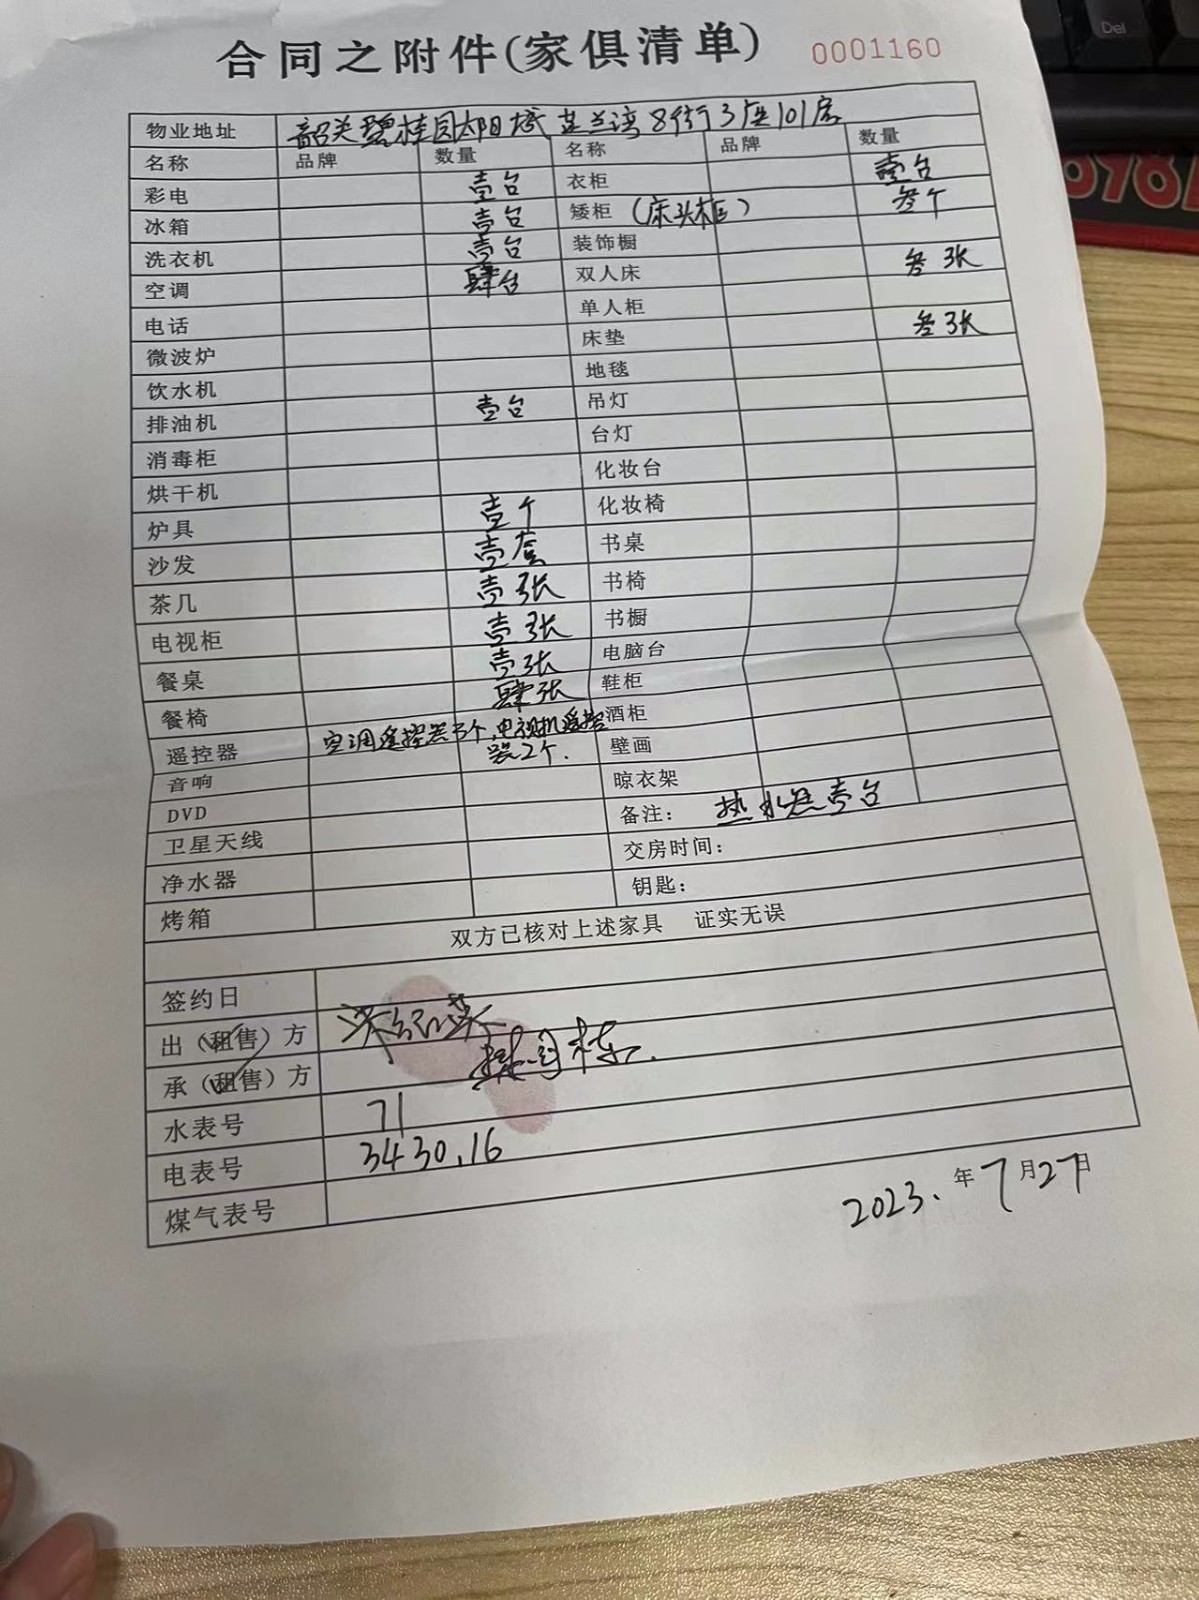 合同之附件(家俱清单) 0001160
物业地址 韶关碧桂园太阳城芷兰湾8街3座101房
名称 品牌 数量 名称 品牌 数量
彩电 壹台 衣柜 壹台
冰箱 壹台 矮柜 (床头柜) 叁个
洗衣机 壹台 装饰橱
空调 肆台 双人床 叁张
电话 单人柜
微波炉 床垫 叁张
饮水机 地毯
排油机 壹台 吊灯
消毒柜 台灯
烘干机 化妆台
炉具 壹个 化妆椅
沙发 壹套 书桌
茶几 壹张 书椅
电视柜 壹张 书橱
餐桌 壹张 电脑台
餐椅 肆张 鞋柜
遥控器 空调遥控器3个,电视机遥控器2个. 酒柜
音响 壁画
DVD 晾衣架
卫星天线 备注: 热水器壹台
净水器 交房时间:
烤箱 钥匙:
双方已核对上述家具 证实无误
签约日
出(租售)方
承(租售)方
水表号 71
电表号 3430.16
煤气表号
2023.年7月27日
Del